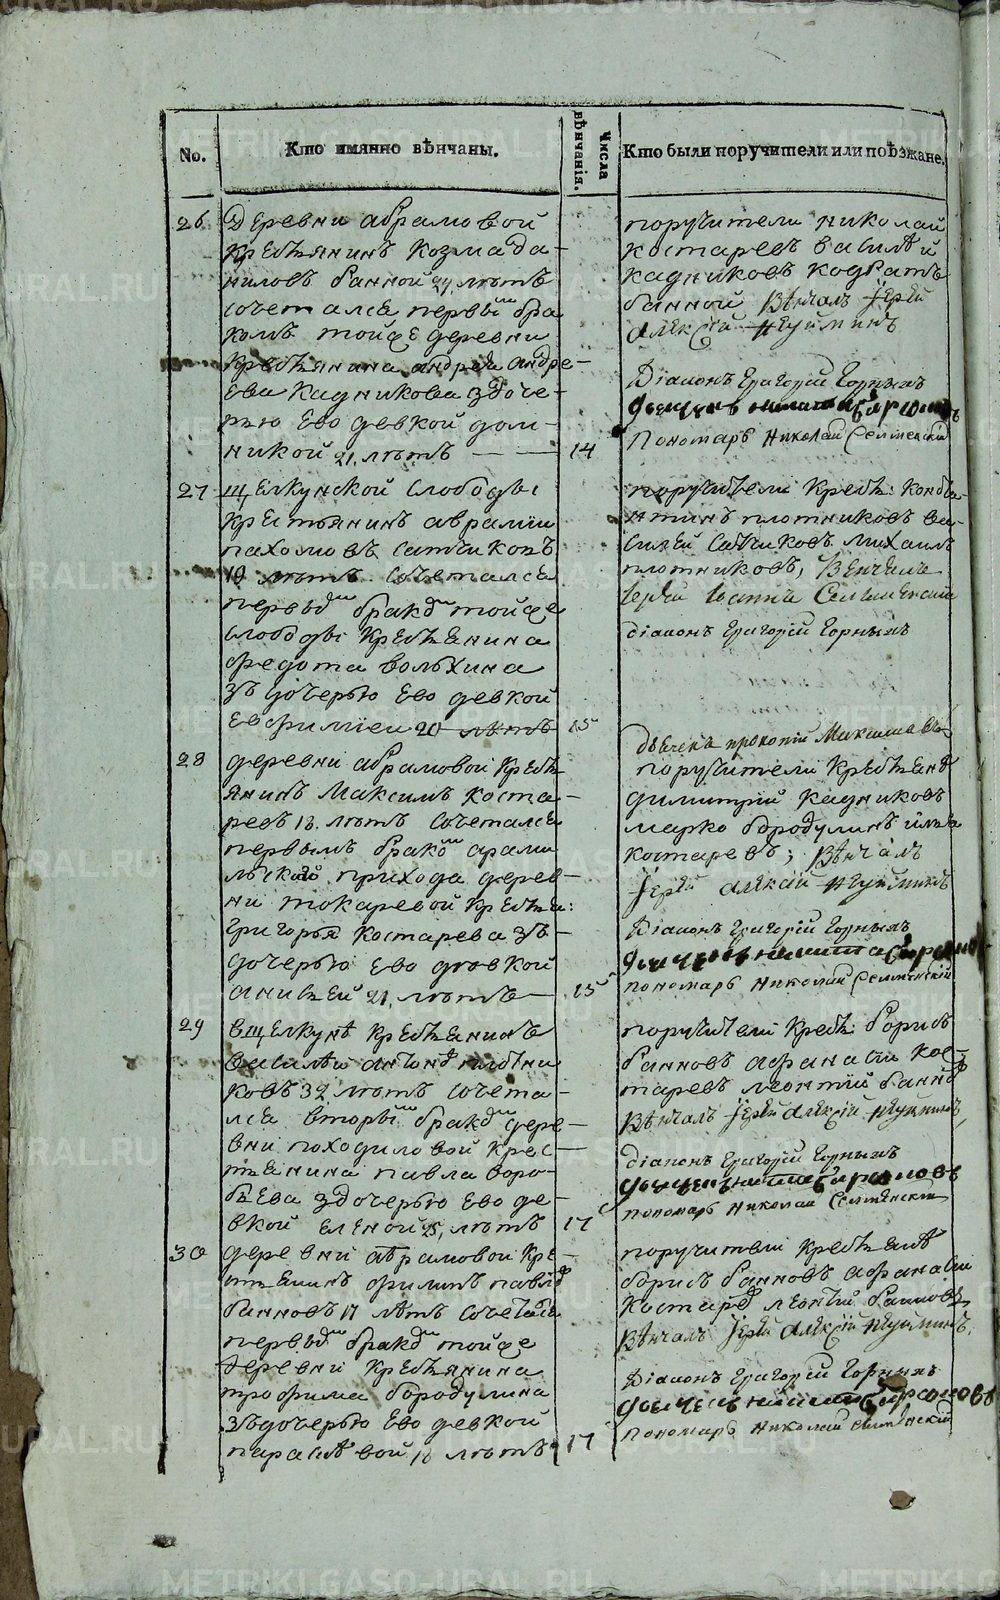 No.
Кто имянно вѣнчаны.
Числа вѣнчанія.
Кто были поручители или поѣзжане.
26
Деревни абрамовой
крестьянинъ козма да-
ниловъ банной 24 лѣтъ
сочетался первымъ бра
комъ тойже деревни
крестьянина андрея андре-
ева кадникова здоче-
рью ево девкой дом-
никой 21 лѣтъ
14
поручители николай
костаревъ василѣй
кадниковъ кодратъ
банной Вѣнчалъ Іерей
Алексій Неуйминъ
Діаконъ Григорій Горныхъ
Пономарь Николай
27
щелкунской слободы
крестьянинъ аврамій
пахомовъ сатчиковъ
19 лѣтъ сочетался
первымъ бракомъ тойже
слободы крестьянина
федота волхина
зъ дочерью ево девкой
евфиміей 20 лѣтъ
15
поручители крестья: конста-
нтинъ плотниковъ ва-
силей сатчиковъ михаилъ
плотниковъ, Венчалъ
Іерей Іоаннъ
діаконъ Григорій Горныхъ
дьячекъ прокопій
28
деревни абрамовой крестья
янинъ Максимъ коста-
ревъ 18 лѣтъ сочетался
первымъ бракомъ арами
льскаго прихода дерев-
ни токаревой крестья:
Григорья костарева зъ-
дочерью ево девкой
анисьей 21 лѣтъ
15
поручители крестьяне
димитрій кадниковъ
марко бородулинъ
костаревъ; Вѣнчалъ
Іерей Алексій Неуйминъ
Діаконъ Григорій Горныхъ
пономарь Николай
29
вщелкунѣ крестьянинъ
василѣй плотни
ковъ 32 лѣтъ сочета-
лся вторымъ бракомъ дере-
вни походиловой крес-
тьянина павла воро-
бьева здочерью ево де-
вкой еленой 25 лѣтъ
17
поручители крестья: борисъ
банновъ афанасій кос-
таревъ леонтій банновъ
Вѣнчалъ Іерей Алексій Неуйминъ,
діаконъ Григорій Горныхъ
пономарь Николай
30
деревни абрамовой кре-
стьянинъ филипъ павловъ
банновъ 17 лѣтъ сочетался
первымъ бракомъ тойже
деревни крестьянина
трофима бородулина
здочерью ево девкой
парасковой 18 лѣтъ
17
поручители крестьяне
борисъ банновъ афанасій
костаревъ леонтій банновъ
Вѣнчалъ Іерей Алексій Неуйминъ,
Діаконъ Григорій Горныхъ
пономарь Николай
METRIKI.GASO-URAL.RU